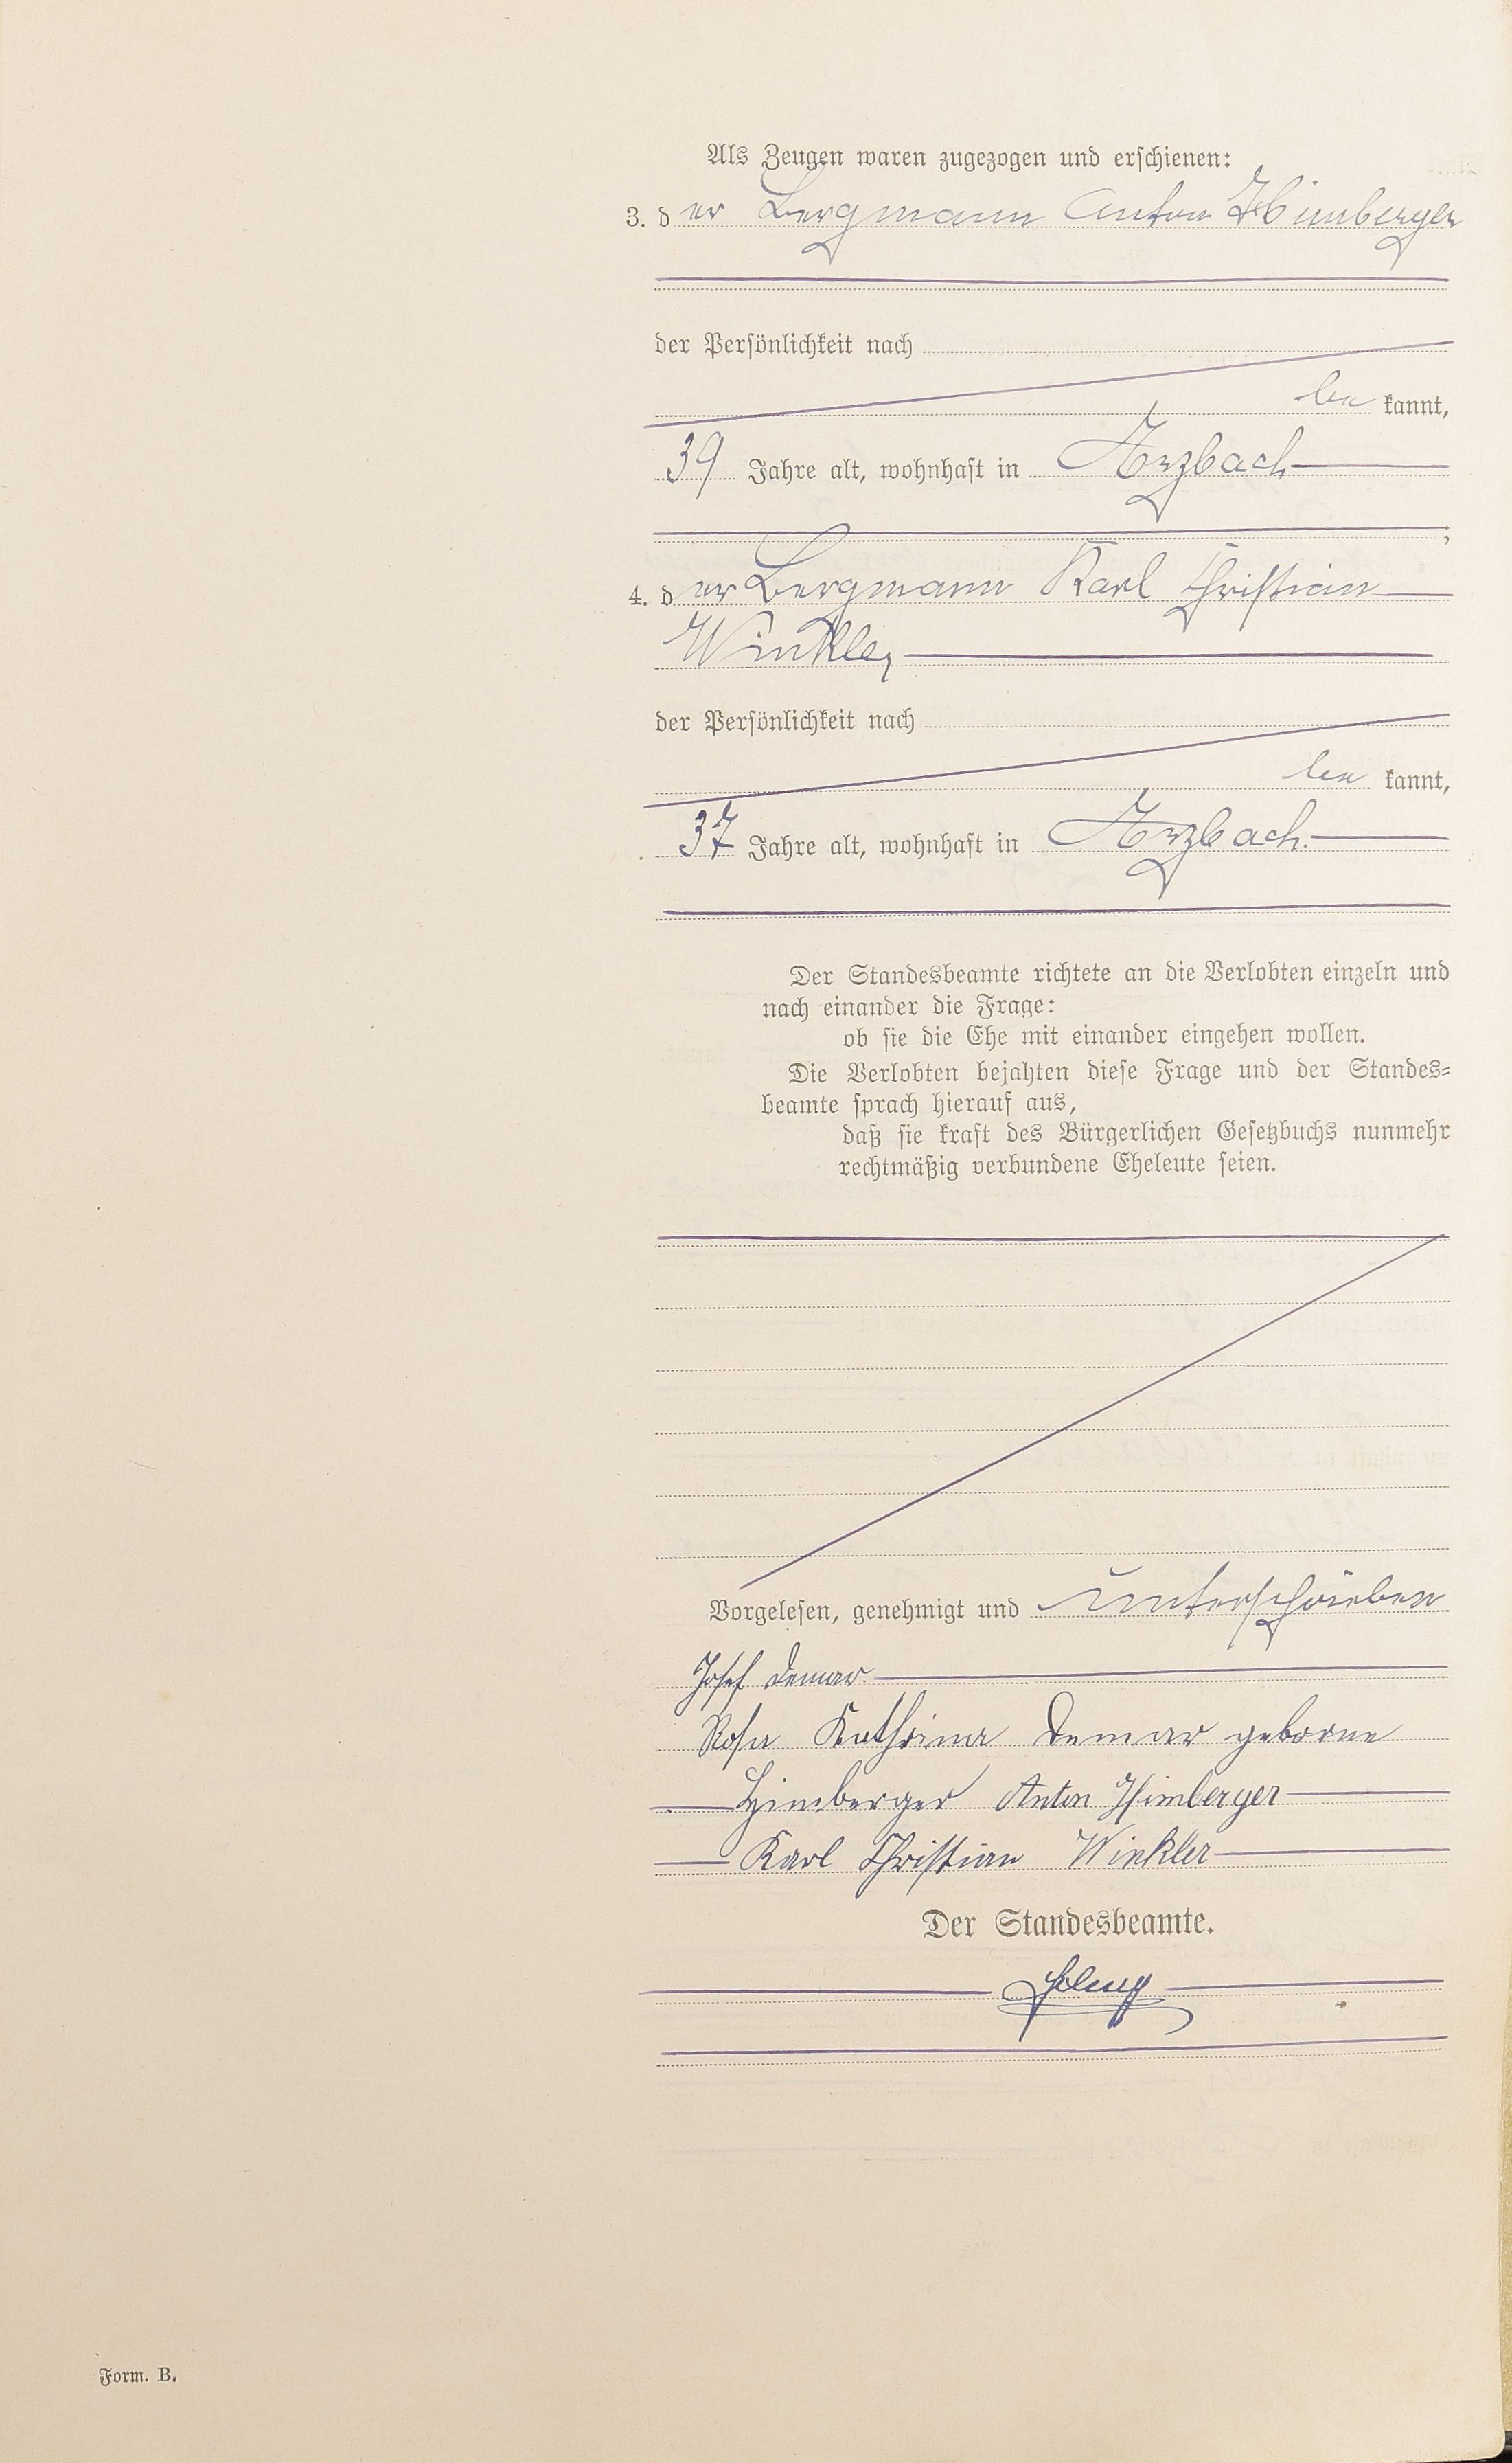 Als Zeugen waren zugezogen und erschienen:
3. der Bergmann Anton Himberger
der Persönlichkeit nach
be kannt,
39 Jahre alt, wohnhaft in Arzbach
;
4. der Bergmann Karl Christian
Winkler
der Persönlichkeit nach
be kannt,
37 Jahre alt, wohnhaft in Arzbach.
Der Standesbeamte richtete an die Verlobten einzeln und
nach einander die Frage:
ob sie die Ehe mit einander eingehen wollen.
Die Verlobten bejahten diese Frage und der Standes-
beamte sprach hierauf aus,
daß sie kraft des Bürgerlichen Gesetzbuchs nunmehr
rechtmäßig verbundene Eheleute seien.
Vorgelesen, genehmigt und unterschrieben
Josef Demar.
Rosa Kathrina Demar geborne
Himberger Anton Himberger
Karl Christian Winkler
Der Standesbeamte.
Form. B.